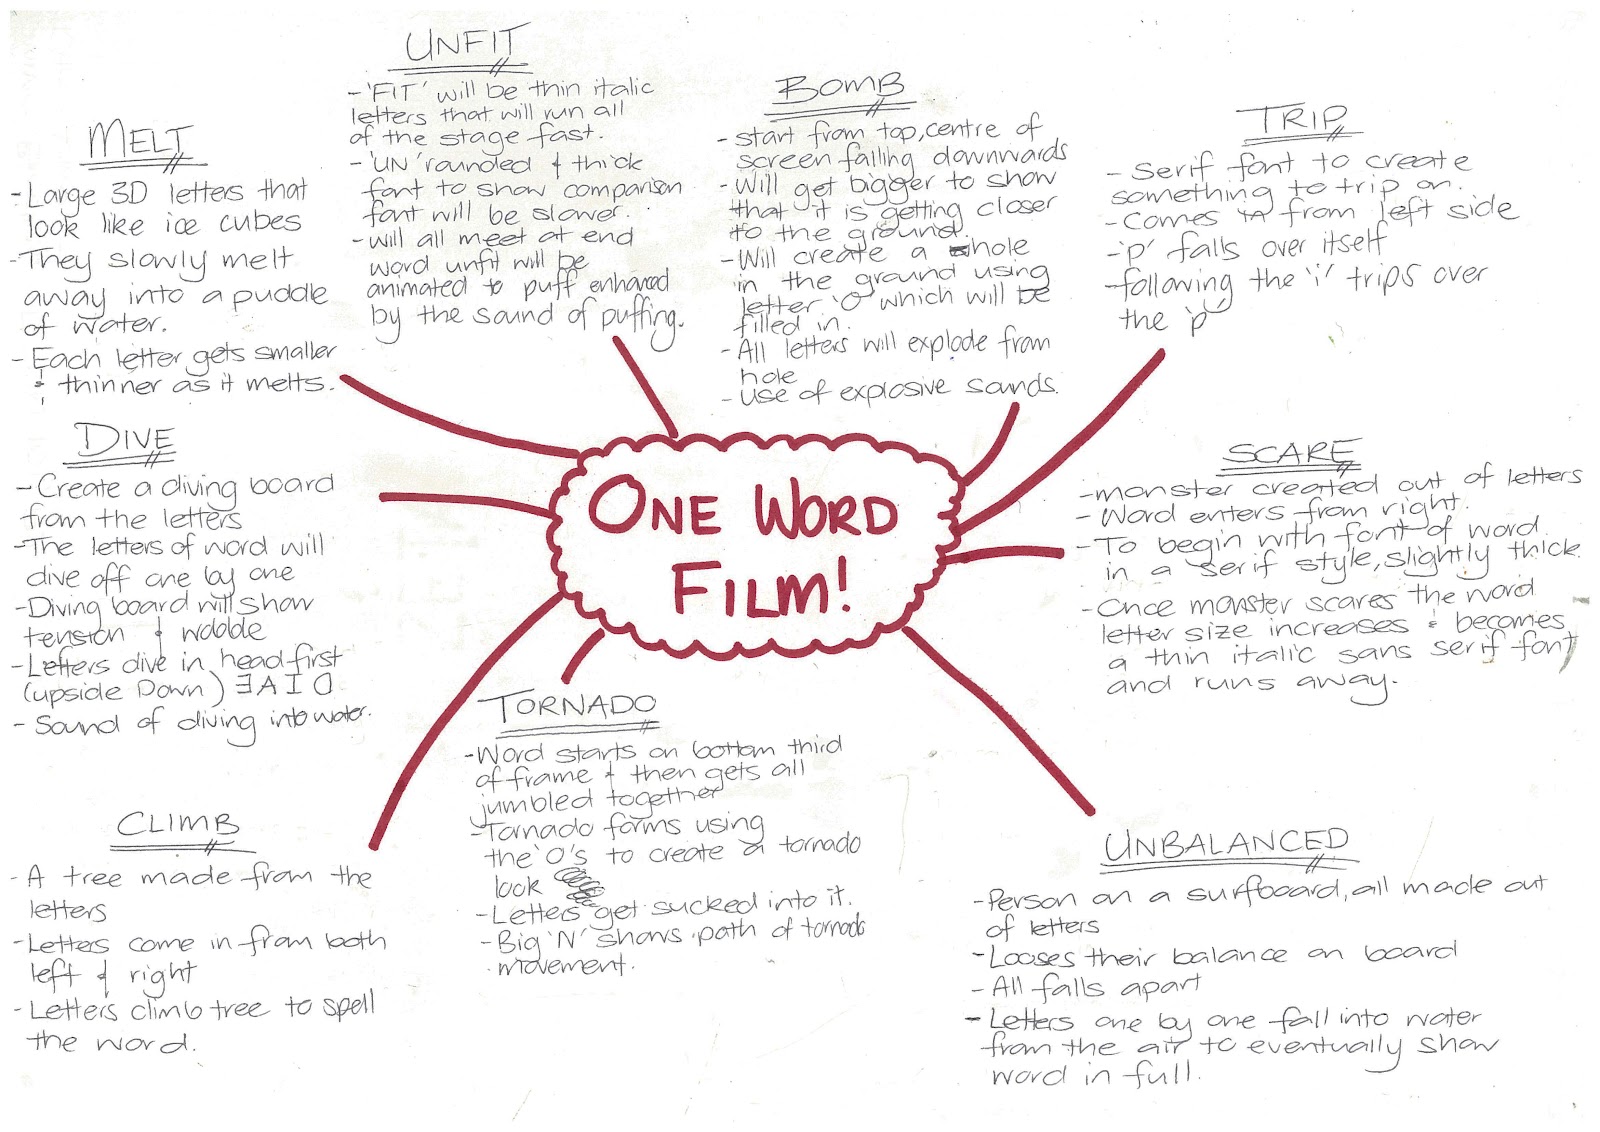 UNFIT
- 'FIT' will be thin italic
letters that will run all
of the stage fast.
- 'UN' rounded & thick
font to show comparison
font will be slower.
- will all meet at end
word unfit will be
animated to puff enhanced
by the sound of puffing.
BOMB
- start from top, centre of
screen falling downwards
- Will get bigger to show
that it is getting closer
to the ground.
- Will create a hole
in the ground using
letter 'O' which will be
filled in.
- All letters will explode from
hole
- use of explosive sounds.
TRIP
- Serif font to create
something to trip on.
- Comes in from left side
- 'P' falls over itself
- following the 'i' trips over
the 'p'
MELT
- Large 3D letters that
look like ice cubes
- They slowly melt
away into a puddle
of water.
- Each letter gets smaller
& thinner as it melts.
DIVE
- Create a diving board
from the letters
- The letters of word will
dive off one by one
- Diving board will show
tension & wobble
- Letters dive in head first
(upside Down) ƎAID
- Sound of diving into water.
ONE WORD
FILM!
SCARE
- monster created out of letters
- Word enters from right.
- To begin with font of word
in a serif style, slightly thick.
- Once monster scares the word
letter size increases & becomes
a thin italic sans serif font
and runs away.
CLIMB
- A tree made from the
letters
- Letters come in from both
left & right
- Letters climb tree to spell
the word.
TORNADO
- Word starts on bottom third
of frame & then gets all
jumbled together
- Tornado forms using
the 'O's to create a tornado
look
- Letters get sucked into it.
- Big 'N' shows path of tornado
movement.
UNBALANCED
- Person on a surfboard, all made out
of letters
- Looses their balance on board
- All falls apart
- Letters one by one fall into water
from the air to eventually show
word in full.